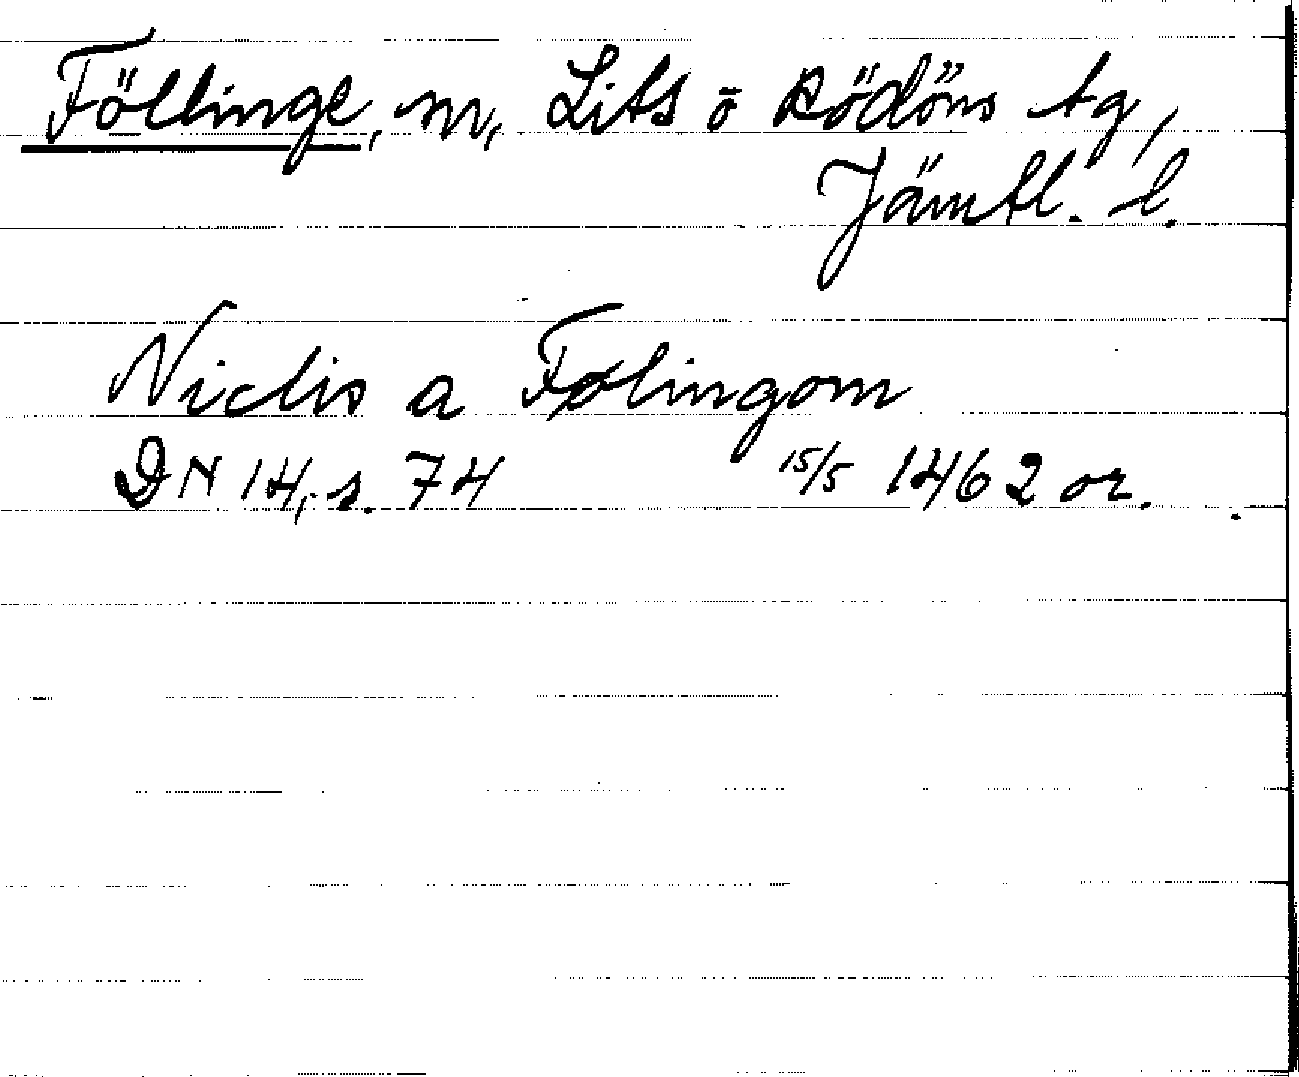 Föllinge, m, Lits ō Rödöns tg,
Jämtl. l.
Niclis a Følingom
DN 14, s. 74 15/5 1462 or.